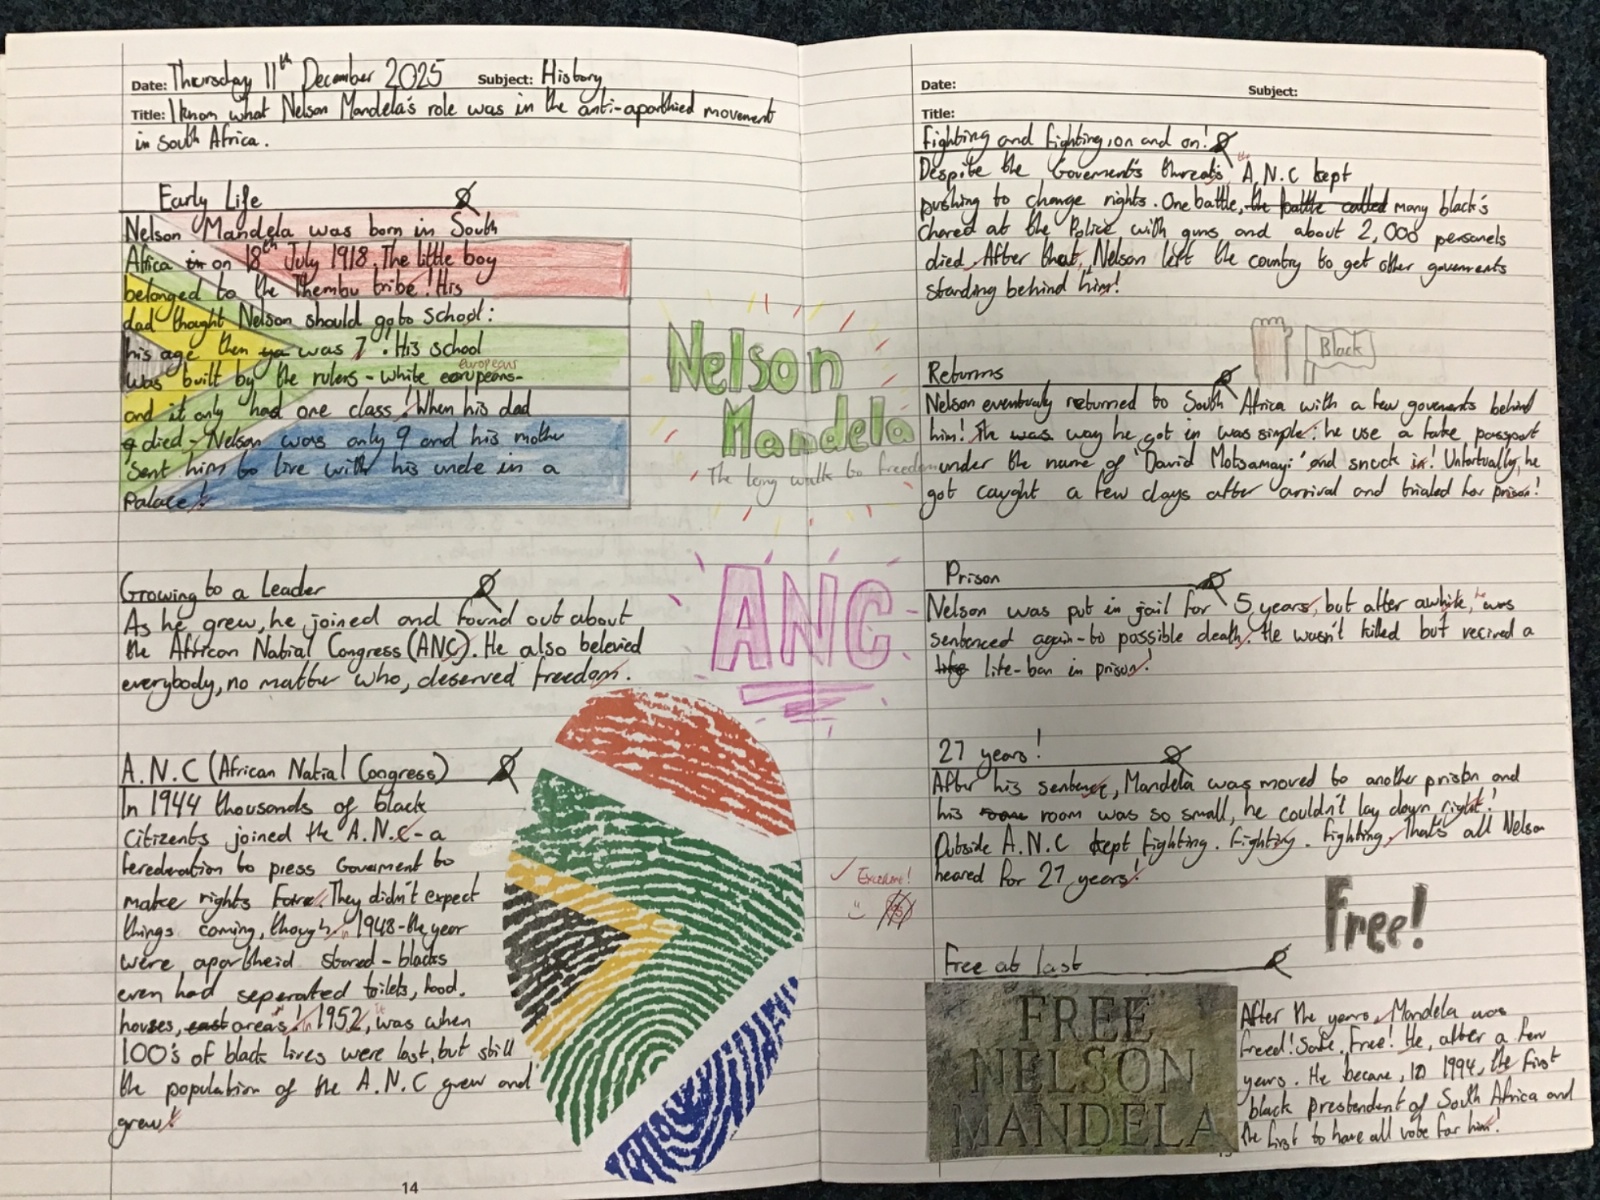 Date: Thursday 11th December 2025 Subject: History
Title: I know what Nelson Mandela's role was in the anti-aparthied movement
in South Africa.
Early Life
Nelson Mandela was born in South
Africa in on 18th July 1918. The little boy
belonged to the Thembu tribe! His
dad thought Nelson should go to school:
his age then ya was 7! His school
europeans
was built by the rulers - white earupeans -
and it only had one class! When his dad
died - Nelson was only 9 and his mother
sent him to live with his uncle in a
palace!
Growing to a Leader
As he grew, he joined and found out about
the African Natial Congress (ANC). He also beleived
everybody, no matter who, deserved freedom.
A.N.C (African Natial Congress)
In 1944 thousands of black
Citizents joined the A.N.C - a
ferederation to press Goverment to
make rights Faire. They didn't expect
things coming, though. In 1948 - the year
were apartheid stared - blacks
even had seperated toilets, food,
houses, east areas! In 1952, it was when
100's of black lives were lost, but still
the population of the A.N.C grew and
grew!
14
Nelson
Mandela
The long walk to freedom
ANC
Excellent!
Date: Subject:
Title:
Fighting and fighting, on and on!
the
Despite the Goverment's threats A.N.C kept
pushing to change rights. One battle, the battle called many black's
chared at the Police with guns and about 2,000 personels
died. After that, Nelson left the country to get other goverments
standing behind him!
Black
Returns
Nelson eventually returned to South Africa with a few goverments behind
him! The was way he got in was simple: he use a fake passport
under the name of 'David Motsamayi' and snuck in! Unfortually, he
got caught a few days after arrival and trialed for prison!
Prison
Nelson was put in jail for 5 years, but after awhile, he was
sentenced again - to possible death. He wasn't killed but recived a
life life-ban in prison!
27 years!
After his sentence, Mandela was moved to another prison and
his room room was so small, he couldn't lay down right!
Outside A.N.C kept fighting. Fighting. Fighting, That's all Nelson
heared for 27 years!
Free!
Free at last
FREE
NELSON
MANDELA
After the years, Mandela was
freed! Safe. Free! He, after a few
years. He became, in 1994, the first
black prestendent of South Africa and
the first to have all vote for him!